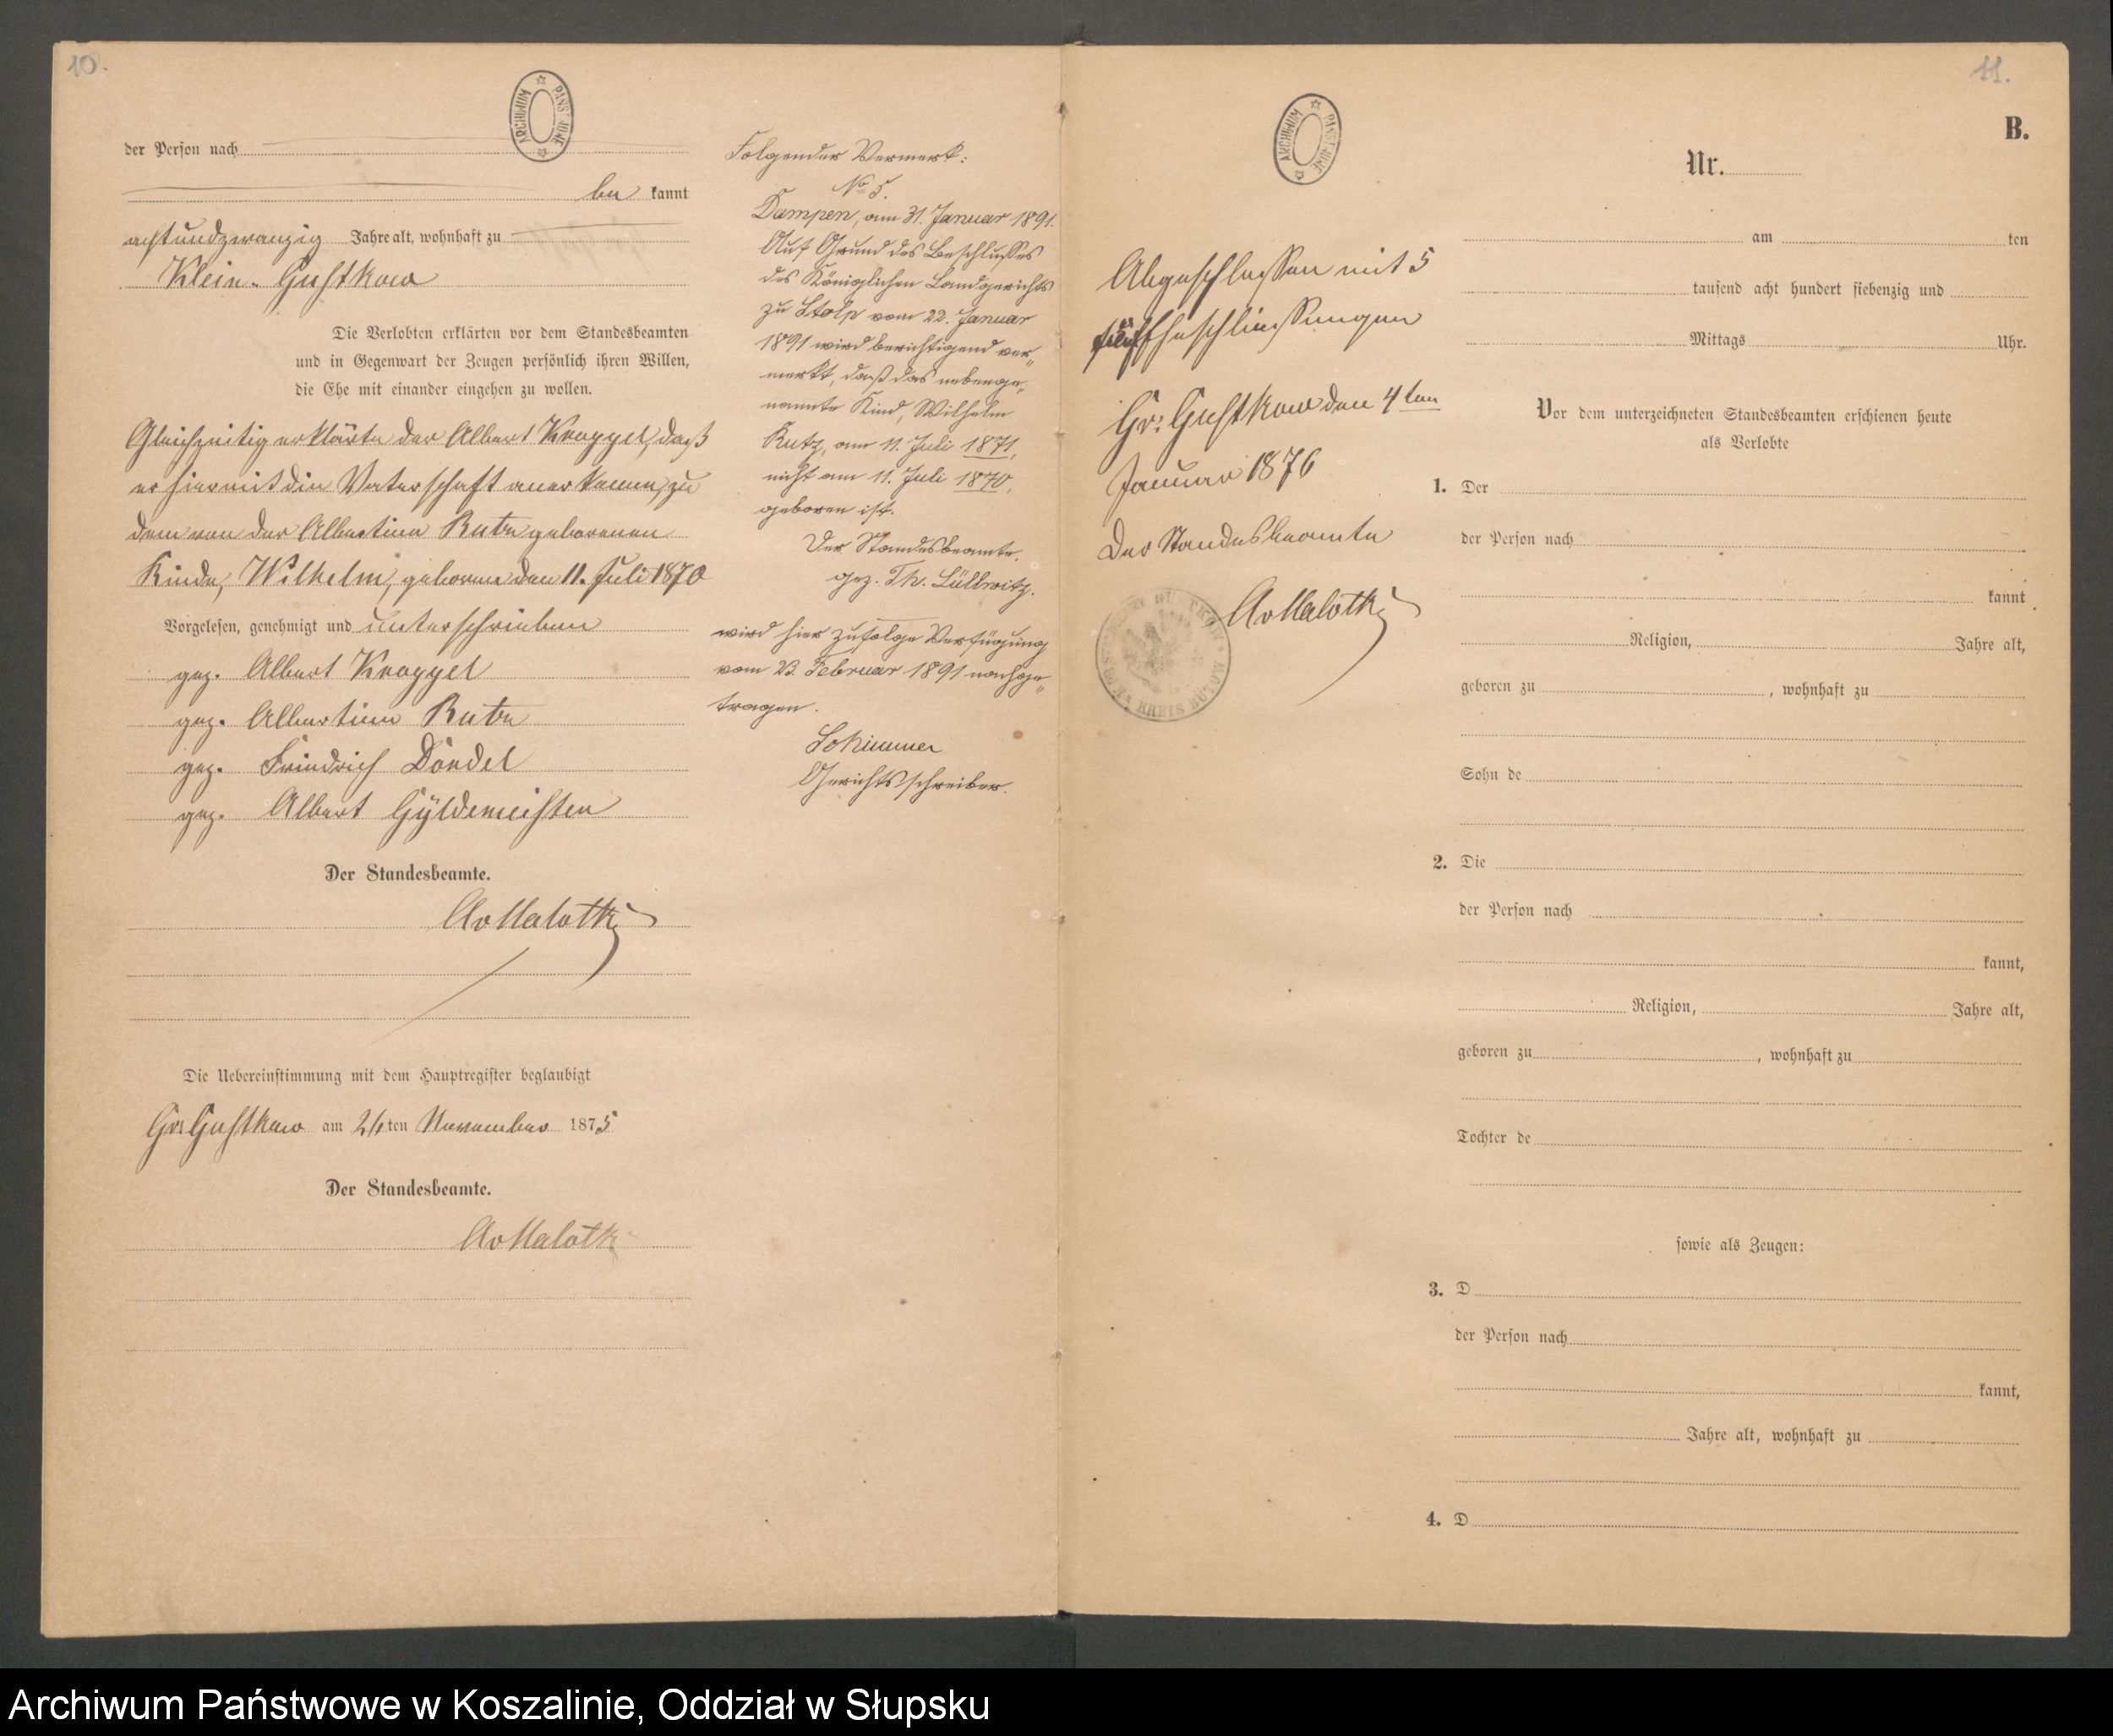 10.
ARCHIWUM PAŃSTWOWE
der Person nach
be kannt
achtundzwanzig Jahre alt, wohnhaft zu
Klein-Gustkow
Die Verlobten erklärten vor dem Standesbeamten
und in Gegenwart der Zeugen persönlich ihren Willen,
die Ehe mit einander eingehen zu wollen.
Gleichzeitig erklärte der Albert Knappel, daß
er hiermit die Vaterschaft anerkenne, zu
dem von der Albertine Rutz geborenen
Kinde, Wilhelm, geboren den 11. Juli 1870
Vorgelesen, genehmigt und unterschrieben
gez. Albert
gez. Albertine
gez. Friedrich Dondel
gez. Albert Gyldemeister
Der Standesbeamte.
AvMalotki
Die Uebereinstimmung mit dem Hauptregister beglaubigt
Gr. Gustkow am ten November 1875
Der Standesbeamte.
AvMalotki
Folgender Vermerk:
No 5.
Dampen, am 31. Januar 1891.
Auf Grund des Beschlusses
des Königlichen Landgerichts
zu Stolp vom 22. Januar
1891 wird berichtigend ver„
merkt, daß das nebenge„
nannte Kind, Wilhelm
Rutz, am 11. Juli 1871,
nicht am 11. Juli 1870,
geboren ist.
Der Standesbeamte.
gez. Th. Lüllwitz.
wird hier zufolge Verfügung
vom 23. Februar 1891 nachge„
tragen.
Gerichtsschreiber.
11.
B.
Nr.
Abgeschlossen mit 5
fünf Eheschließungen
Gr. Gustkow den 4ten
Januar 1876
Der Standesbeamte
AvMalotki
am ten
tausend acht hundert siebenzig und
Mittags Uhr.
Vor dem unterzeichneten Standesbeamten erschienen heute
als Verlobte
1. Der
der Person nach
kannt
Religion, Jahre alt,
geboren zu , wohnhaft zu
Sohn de
2. Die
der Person nach
kannt,
Religion, Jahre alt,
geboren zu , wohnhaft zu
Tochter de
sowie als Zeugen:
3. D
der Person nach
kannt,
Jahre alt, wohnhaft zu
4. D
Archiwum Państwowe w Koszalinie, Oddział w Słupsku